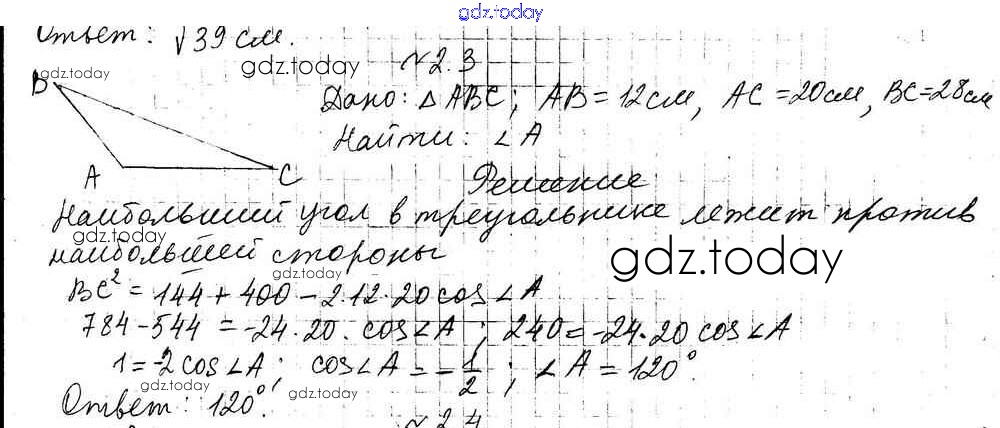 gdz.today
Ответ: √39 см.
gdz.today
№2.3
B gdz.today
Дано: △ABC; AB=12см, AC=20см, BC=28см
Найти: ∠A
A C
Решение
Наибольший угол в треугольнике лежит против
gdz.today
наибольшей стороны
gdz.today
gdz.today
BC²=144+400-2·12·20cos∠A
784-544=-24·20·cos∠A; 240=-24·20cos∠A
1=-2cos∠A; cos∠A=-1/2; ∠A=120°.
gdz.today
gdz.today
Ответ: 120°.
№2.4